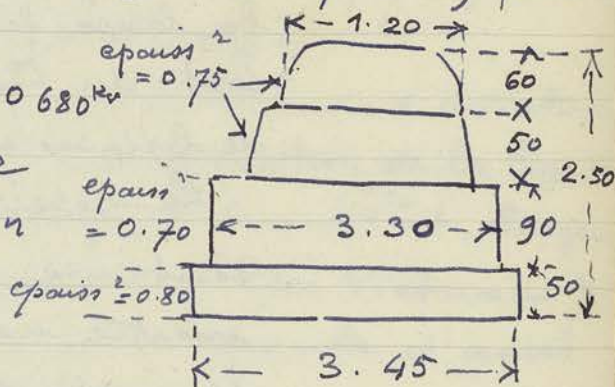 1.20
epaiss r
= 0.75
60
0 680 kg
50
2.50
epaiss r
n
= 0.70
3.30
90
epaiss r = 0.80
50
3.45